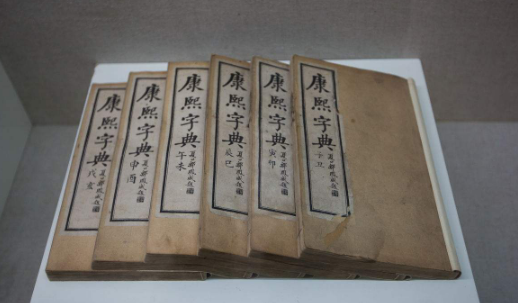 康熙字典
子丑
康熙字典
寅卯
康熙字典
辰巳
康熙字典
午未
康熙字典
申酉
康熙字典
戌亥